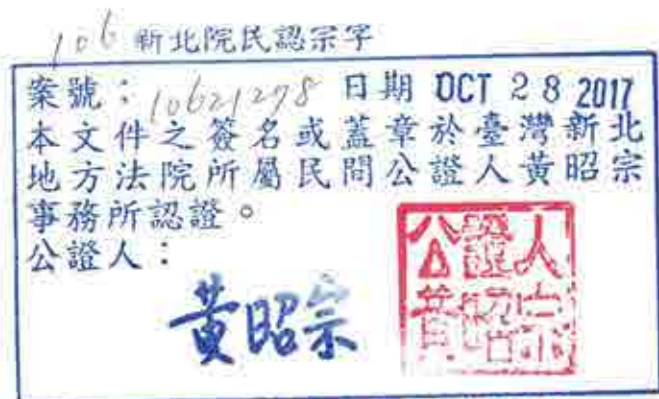 106 新北院民認宗字
案號：10621278 日期 OCT 28 2017
本文件之簽名或蓋章於臺灣新北
地方法院所屬民間公證人黃昭宗
事務所認證。
公證人：
黃昭宗
公證人
黃昭宗